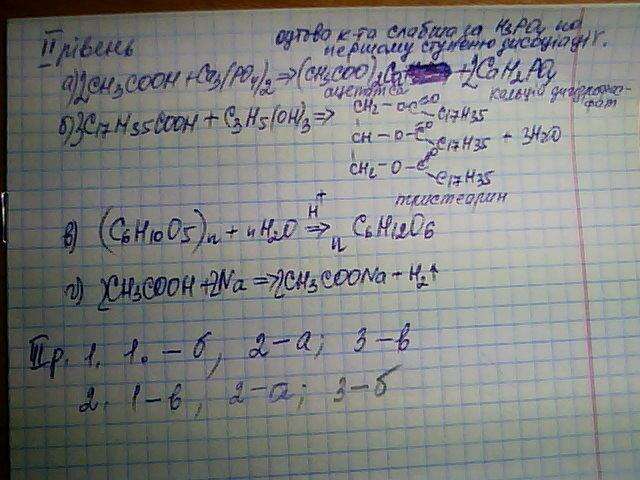 II рівень
оцтова к-та слабша за H3PO4 по
першому ступеню дисоціації.
а) 2CH3COOH + Ca3(PO4)2 => (CH3COO)2Ca + 2CaHPO4
ацетат Ca кальцію дигідрофос-
фат
б) 3C17H35COOH + C3H5(OH)3 =>
CH2 - O - C=O C17H35
CH - O - C=O C17H35 + 3H2O
CH2 - O - C=O C17H35
тристеарин
в) (C6H10O5)n + nH2O =H+=> n C6H12O6
г) 2CH3COOH + 2Na => 2CH3COONa + H2↑
III р. 1. 1. – б, 2 – а; 3 – в
2. 1 – в, 2 – а; 3 – б